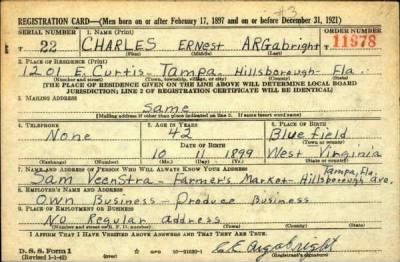 #3
REGISTRATION CARD—(Men born on or after February 17, 1897 and on or before December 31, 1921)
SERIAL NUMBER 1. NAME (Print) ORDER NUMBER
T 22 CHARLES ERNest ARGabright 11978
(First) (Middle) (Last)
2. PLACE OF RESIDENCE (Print)
1201 E. Curtis - Tampa Hillsborough - Fla.
(Number and street) (Town, township, village, or city) (County) (State)
[THE PLACE OF RESIDENCE GIVEN ON THE LINE ABOVE WILL DETERMINE LOCAL BOARD
JURISDICTION; LINE 2 OF REGISTRATION CERTIFICATE WILL BE IDENTICAL]
3. MAILING ADDRESS
Same
[Mailing address if other than place indicated on line 2. If same insert word same]
4. TELEPHONE 5. AGE IN YEARS 6. PLACE OF BIRTH
None 42 Bluefield
DATE OF BIRTH (Town or county)
10 11 1899 West Virginia
(Exchange) (Number) (Mo.) (Day) (Yr.) (State or country)
7. NAME AND ADDRESS OF PERSON WHO WILL ALWAYS KNOW YOUR ADDRESS Tampa, Fla.
Sam Veenstra - Farmer's Market - Hillsborough ave.
8. EMPLOYER'S NAME AND ADDRESS
Own Business - Produce Business
9. PLACE OF EMPLOYMENT OR BUSINESS
No Regular Address
(Number and street or R. F. D. number) (Town) (County) (State)
I AFFIRM THAT I HAVE VERIFIED ABOVE ANSWERS AND THAT THEY ARE TRUE.
D. S. S. Form 1
(Revised 1-1-42) (over)
C E Argabright
(Registrant's signature)